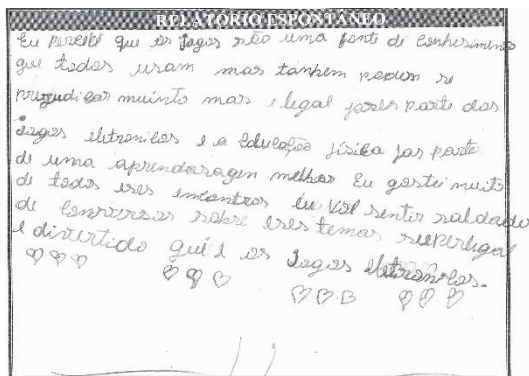 RELATÓRIO ESPONTÂNEO
Eu percebi que os Jogos são uma fonte de conhesimento
que todos usam mas tanhem podem se
prejudicar muinto mas e legal fazer parte dos
Jogos eletronicos e a Educação física fas parte
de uma aprendasagen melhor Eu gostei muito
de todos eses encontros Eu vol sentir saldades
de converssar sobre eses temas superlegal
e divertido que e os Jogos eletronicos.
♡♡♡ ♡♡♡ ♡♡♡ ♡♡♡